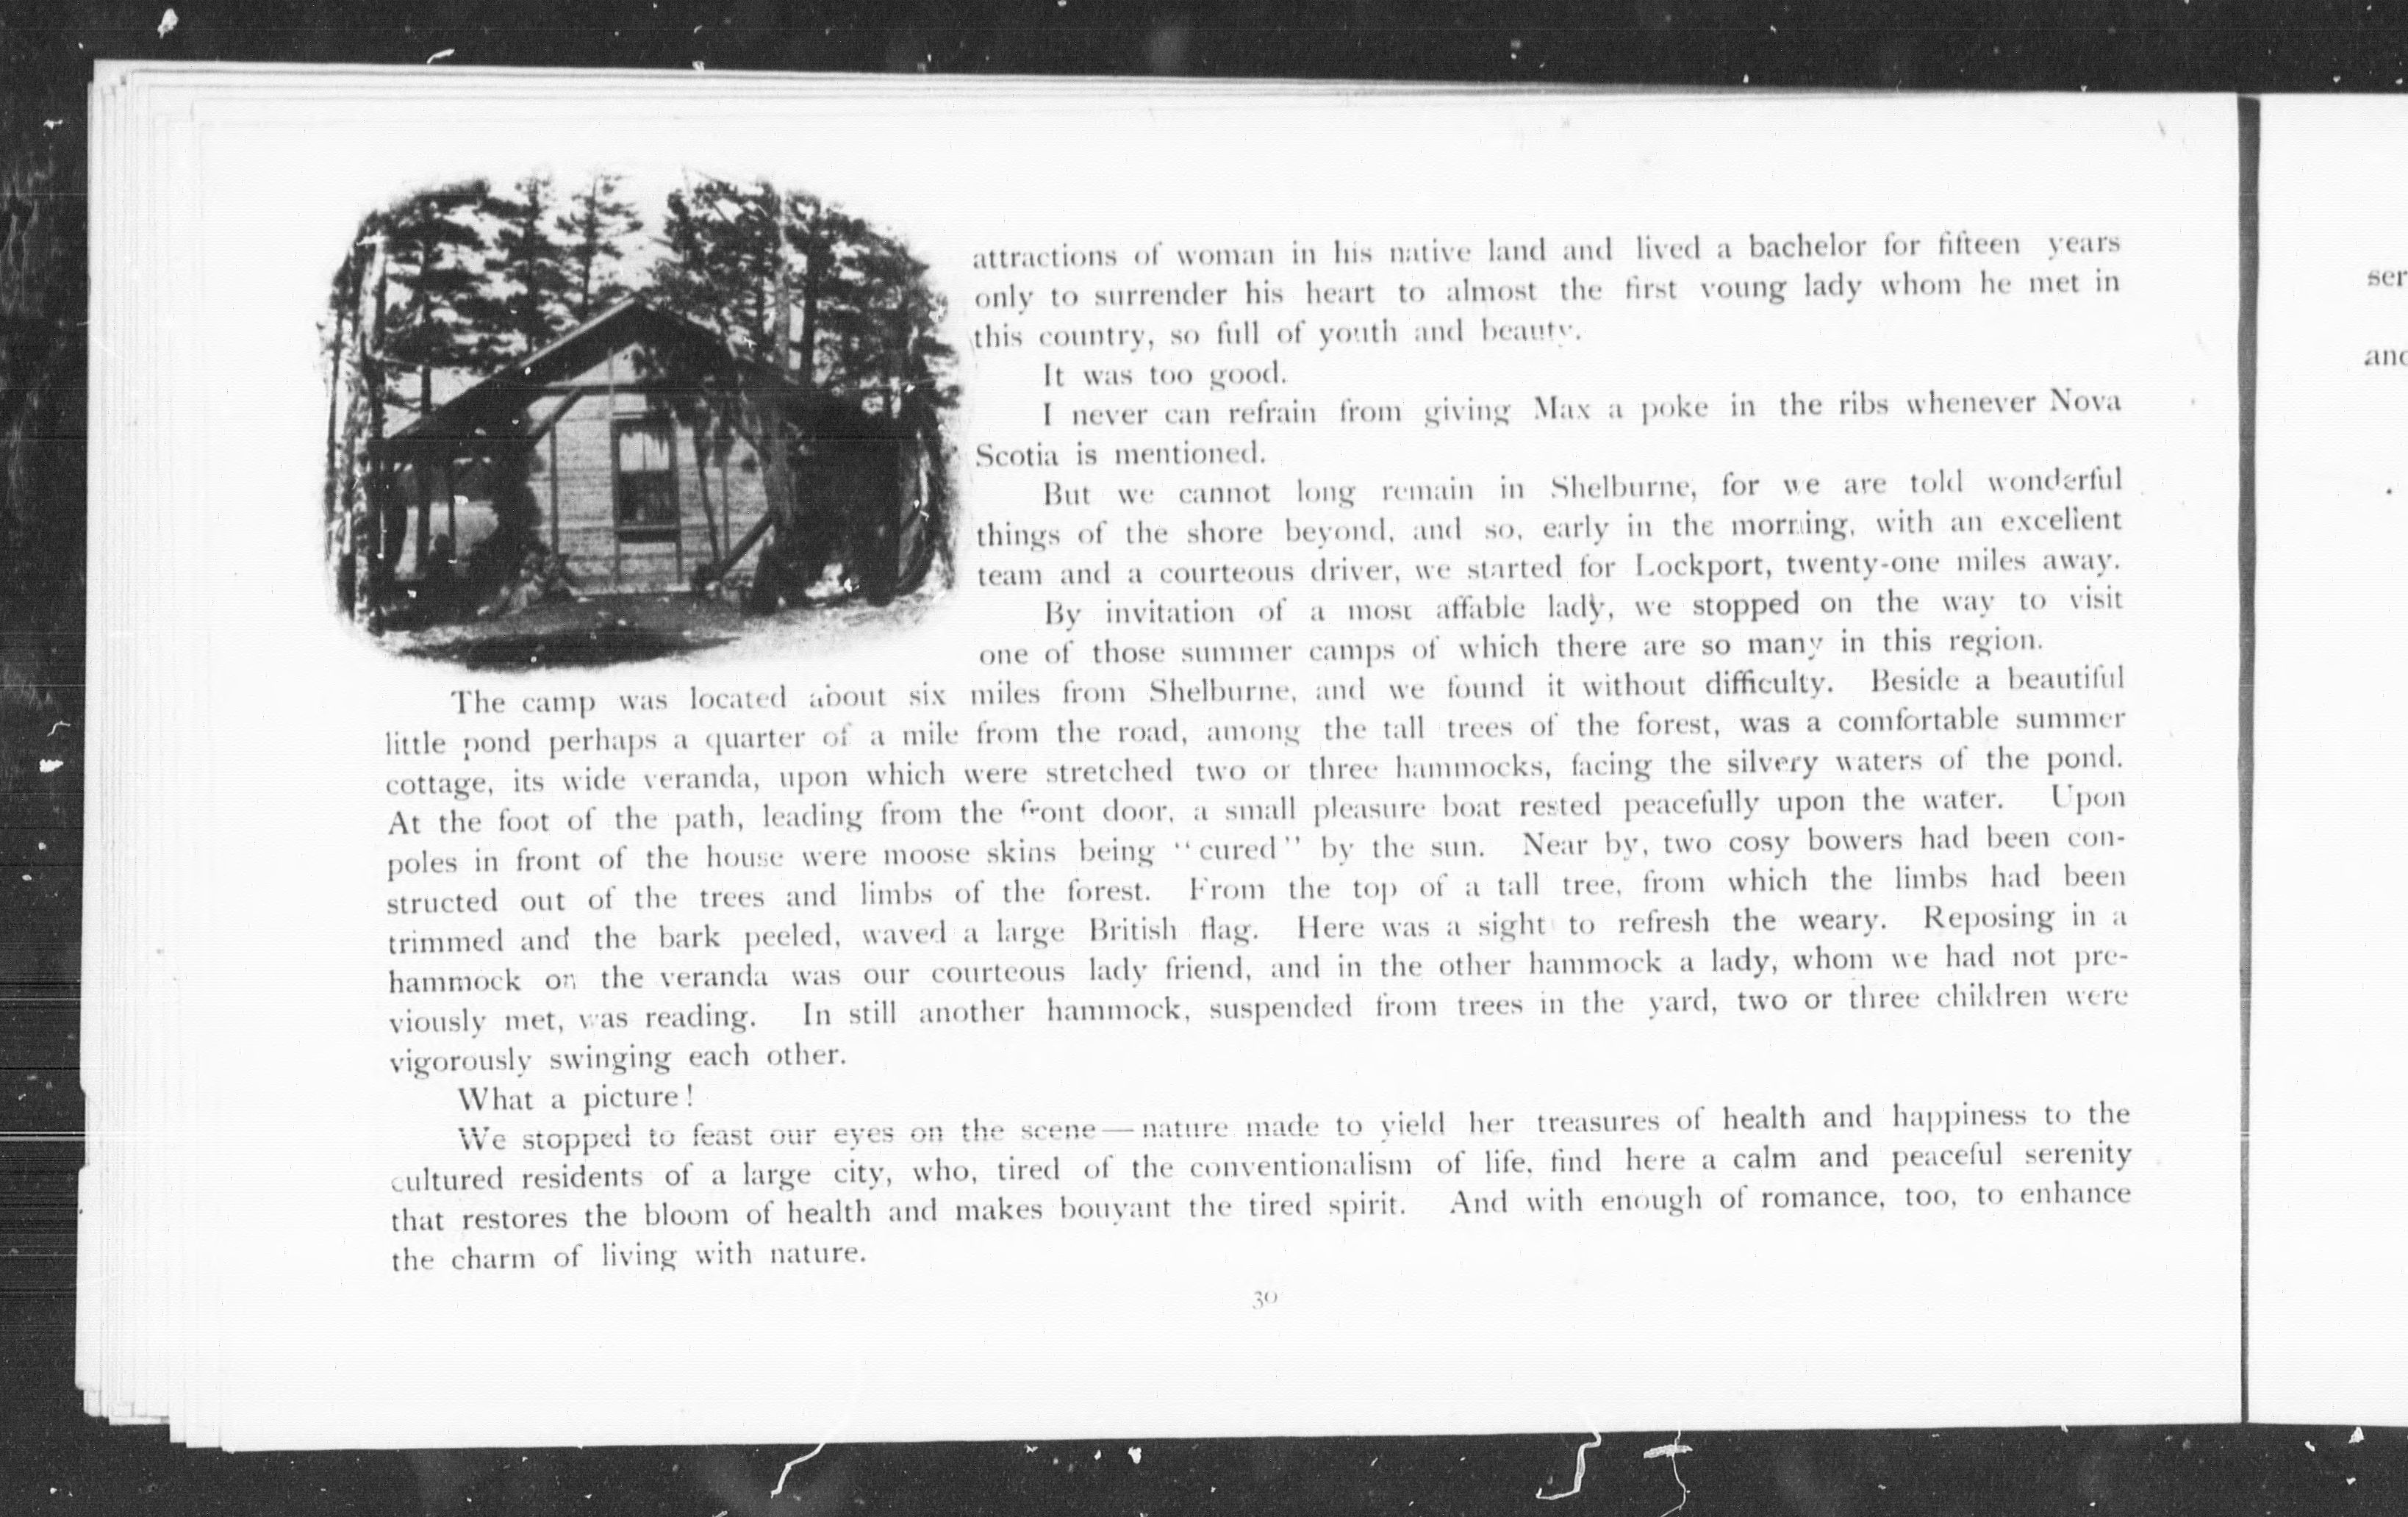 attractions of woman in his native land and lived a bachelor for fifteen years
only to surrender his heart to almost the first young lady whom he met in
this country, so full of youth and beauty.
It was too good.
I never can refrain from giving Max a poke in the ribs whenever Nova
Scotia is mentioned.
But we cannot long remain in Shelburne, for we are told wonderful
things of the shore beyond, and so, early in the morning, with an excellent
team and a courteous driver, we started for Lockport, twenty-one miles away.
By invitation of a most affable lady, we stopped on the way to visit
one of those summer camps of which there are so many in this region.
The camp was located about six miles from Shelburne, and we found it without difficulty. Beside a beautiful
little pond perhaps a quarter of a mile from the road, among the tall trees of the forest, was a comfortable summer
cottage, its wide veranda, upon which were stretched two or three hammocks, facing the silvery waters of the pond.
At the foot of the path, leading from the front door, a small pleasure boat rested peacefully upon the water. Upon
poles in front of the house were moose skins being "cured" by the sun. Near by, two cosy bowers had been con-
structed out of the trees and limbs of the forest. From the top of a tall tree, from which the limbs had been
trimmed and the bark peeled, waved a large British flag. Here was a sight to refresh the weary. Reposing in a
hammock on the veranda was our courteous lady friend, and in the other hammock a lady, whom we had not pre-
viously met, was reading. In still another hammock, suspended from trees in the yard, two or three children were
vigorously swinging each other.
What a picture!
We stopped to feast our eyes on the scene—nature made to yield her treasures of health and happiness to the
cultured residents of a large city, who, tired of the conventionalism of life, find here a calm and peaceful serenity
that restores the bloom of health and makes bouyant the tired spirit. And with enough of romance, too, to enhance
the charm of living with nature.
30
ser
and